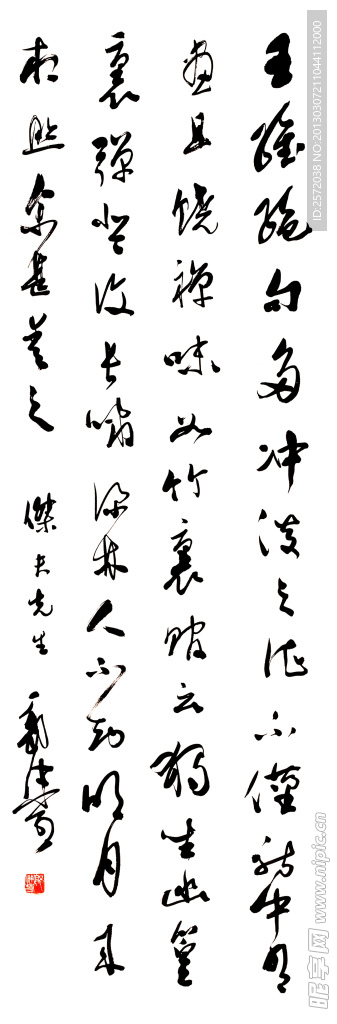 王維絶句多冲淡之作不僅詩中有
畫且饒禪味如竹裏館云獨坐幽篁
裏彈琴復長嘯深林人不知明月來
相照余甚善之
傑夫先生
郭沫若
ID:2572038 NO:20130307211044112000
昵享网 www.nipic.cn